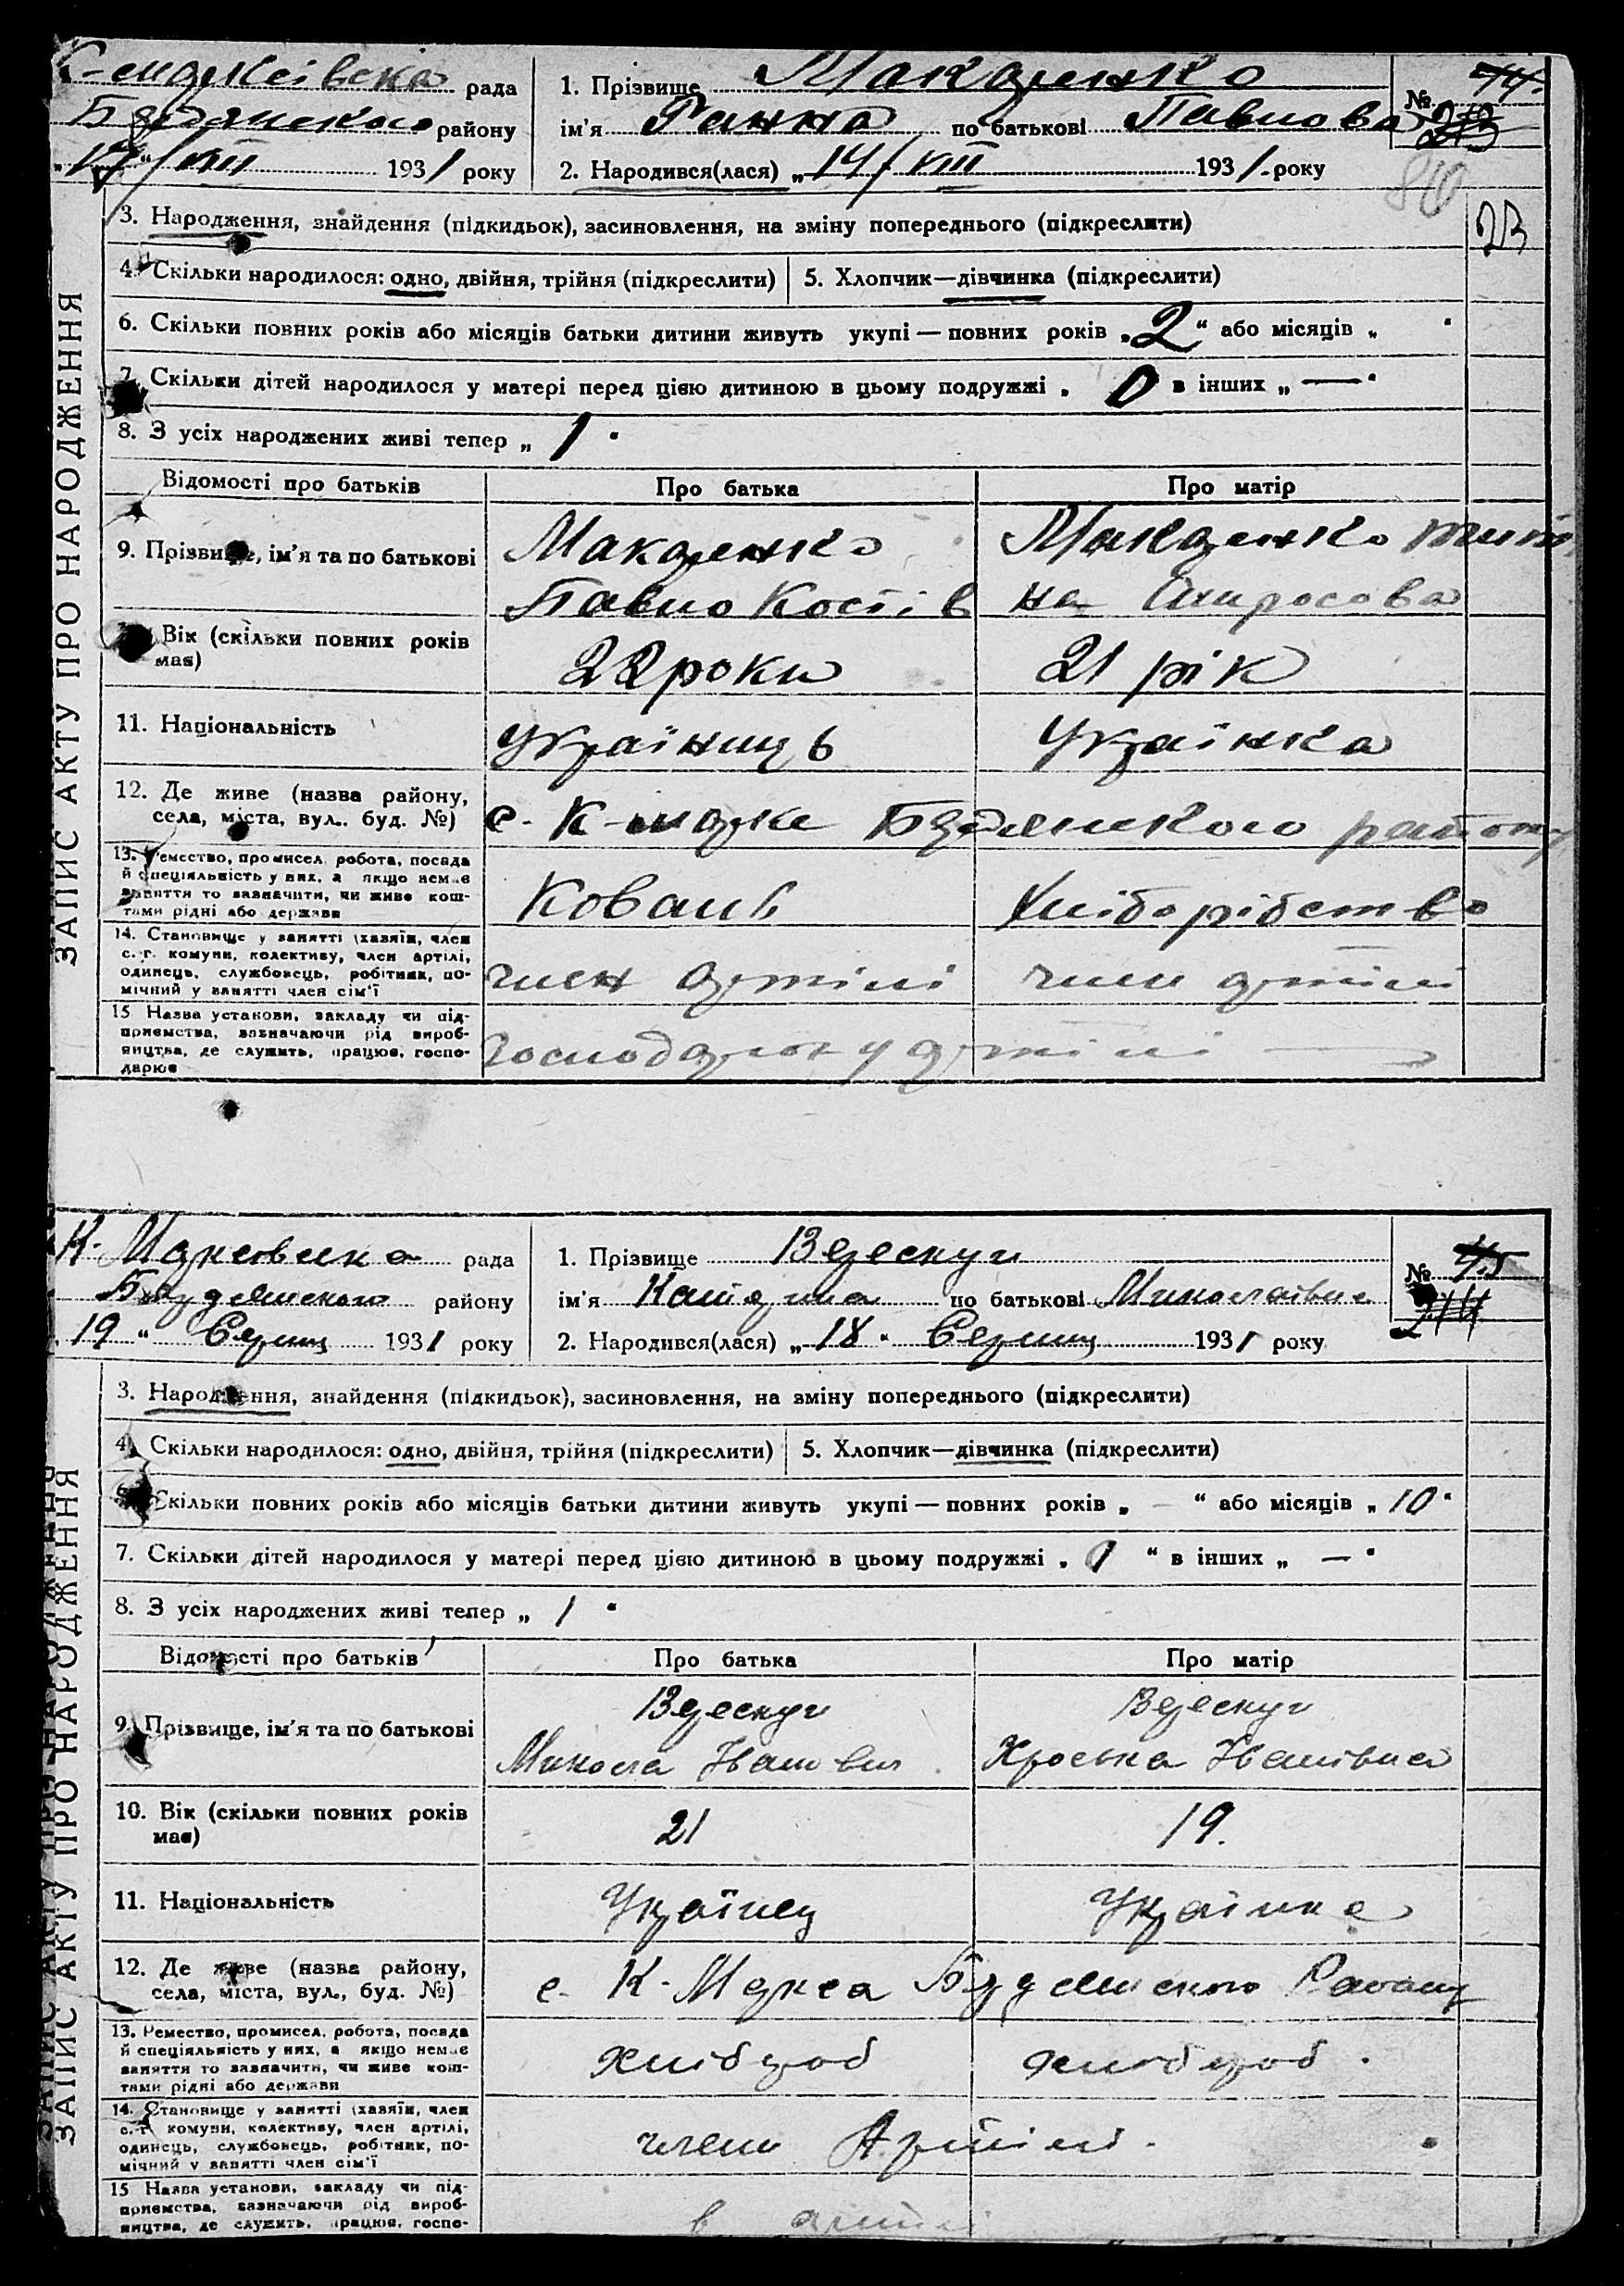 К-марксівська рада
Бердянського району
17/VIII 1931 року
1. Прізвище Макаренко
ім'я Ганна по батькові Павлова
2. Народився(лася) „14/VIII 1931 року
№ 44.
213
80
23
ЗАПИС АКТУ ПРО НАРОДЖЕННЯ
3. Народження, знайдення (підкидьок), засиновлення, на зміну попереднього (підкреслити)
4. Скільки народилося: одно, двійня, трійня (підкреслити) 5. Хлопчик—дівчинка (підкреслити)
6. Скільки повних років або місяців батьки дитини живуть укупі — повних років „2“ або місяців „ “
7. Скільки дітей народилося у матері перед цією дитиною в цьому подружжі „ 0 в інших „ — “
8. З усіх народжених живі тепер „ 1 “
Відомості про батьків Про батька Про матір
9. Прізвище, ім'я та по батькові
Макаренко
Павло Костів
Макаренко
на
10. Вік (скільки повних років має)
22 роки 21 рік
11. Національність Україниць Українка
12. Де живе (назва району,
села, міста, вул., буд. №)
с. К-маркс Бердянського району
13. Ремество, промисел, робота, посада
й спеціяльність у них, а якщо немає
заняття то зазначити, чи живе кош-
тами рідні або держави
Коваль Хліборібство
14. Становище у занятті (хазяїн, член
с.-г. комуни, колективу, член артілі,
одинець, службовець, робітник, по-
мічний у занятті член сім'ї
член артілі член артілі
15 Назва установи, закладу чи під-
приємства, зазначаючи рід вироб-
ництва, де служить, працює, госпо-
дарює
у артілі
К. Марксівська рада
Бердянського району
19 “ Серпня 1931 року
1. Прізвище
ім'я Катерина по батькові Миколаївна
2. Народився(лася) „ 18 “ Серпня 1931 року
№ 45
214
ЗАПИС АКТУ ПРО НАРОДЖЕННЯ
3. Народження, знайдення (підкидьок), засиновлення, на зміну попереднього (підкреслити)
4. Скільки народилося: одно, двійня, трійня (підкреслити) 5. Хлопчик—дівчинка (підкреслити)
6. Скільки повних років або місяців батьки дитини живуть укупі — повних років „ – “ або місяців „ 10 “
7. Скільки дітей народилося у матері перед цією дитиною в цьому подружжі „ 1 “ в інших „ — “
8. З усіх народжених живі тепер „ 1 “
Відомості про батьків Про батька Про матір
9. Прізвище, ім'я та по батькові
Микола Іванович Хроська Іванівна
10. Вік (скільки повних років має)
21 19.
11. Національність Українец Українка
12. Де живе (назва району,
села, міста, вул., буд. №)
с. К. Маркса Бердянського Району
13. Ремество, промисел, робота, посада
й спеціяльність у них, а якщо немає
заняття то зазначити, чи живе кош-
тами рідні або держави
хлібороб хлібороб.
14. Становище у занятті (хазяїн, член
с.-г. комуни, колективу, член артілі,
одинець, службовець, робітник, по-
мічний у занятті член сім'ї
члени Артілі.
15 Назва установи, закладу чи під-
приємства, зазначаючи рід вироб-
ництва, де служить, працює, госпо-
в артілі